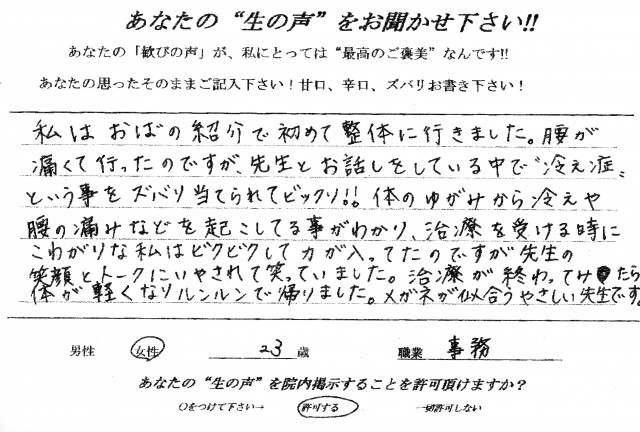 あなたの“生の声”をお聞かせ下さい!!
あなたの「歓びの声」が、私にとっては“最高のご褒美”なんです!!
あなたの思ったそのままご記入下さい！甘口、辛口、ズバリお書き下さい！
私はおばの紹介で初めて整体に行きました。腰が
痛くて行ったのですが、先生とお話しをしている中で“冷え症”
という事をズバリ当てられてビックリ!! 体のゆがみから冷えや
腰の痛みなどを起こしてる事がわかり、治療を受ける時に
こわがりな私はビクビクして力が入ってたのですが先生の
笑顔とトークにいやされて笑っていました。治療が終わってみたら
体が軽くなりルンルンで帰りました。メガネが似合うやさしい先生です。
男性 女性 23 歳 職業 事務
あなたの“生の声”を院内掲示することを許可頂けますか？
○をつけて下さい→ 許可する 一切許可しない